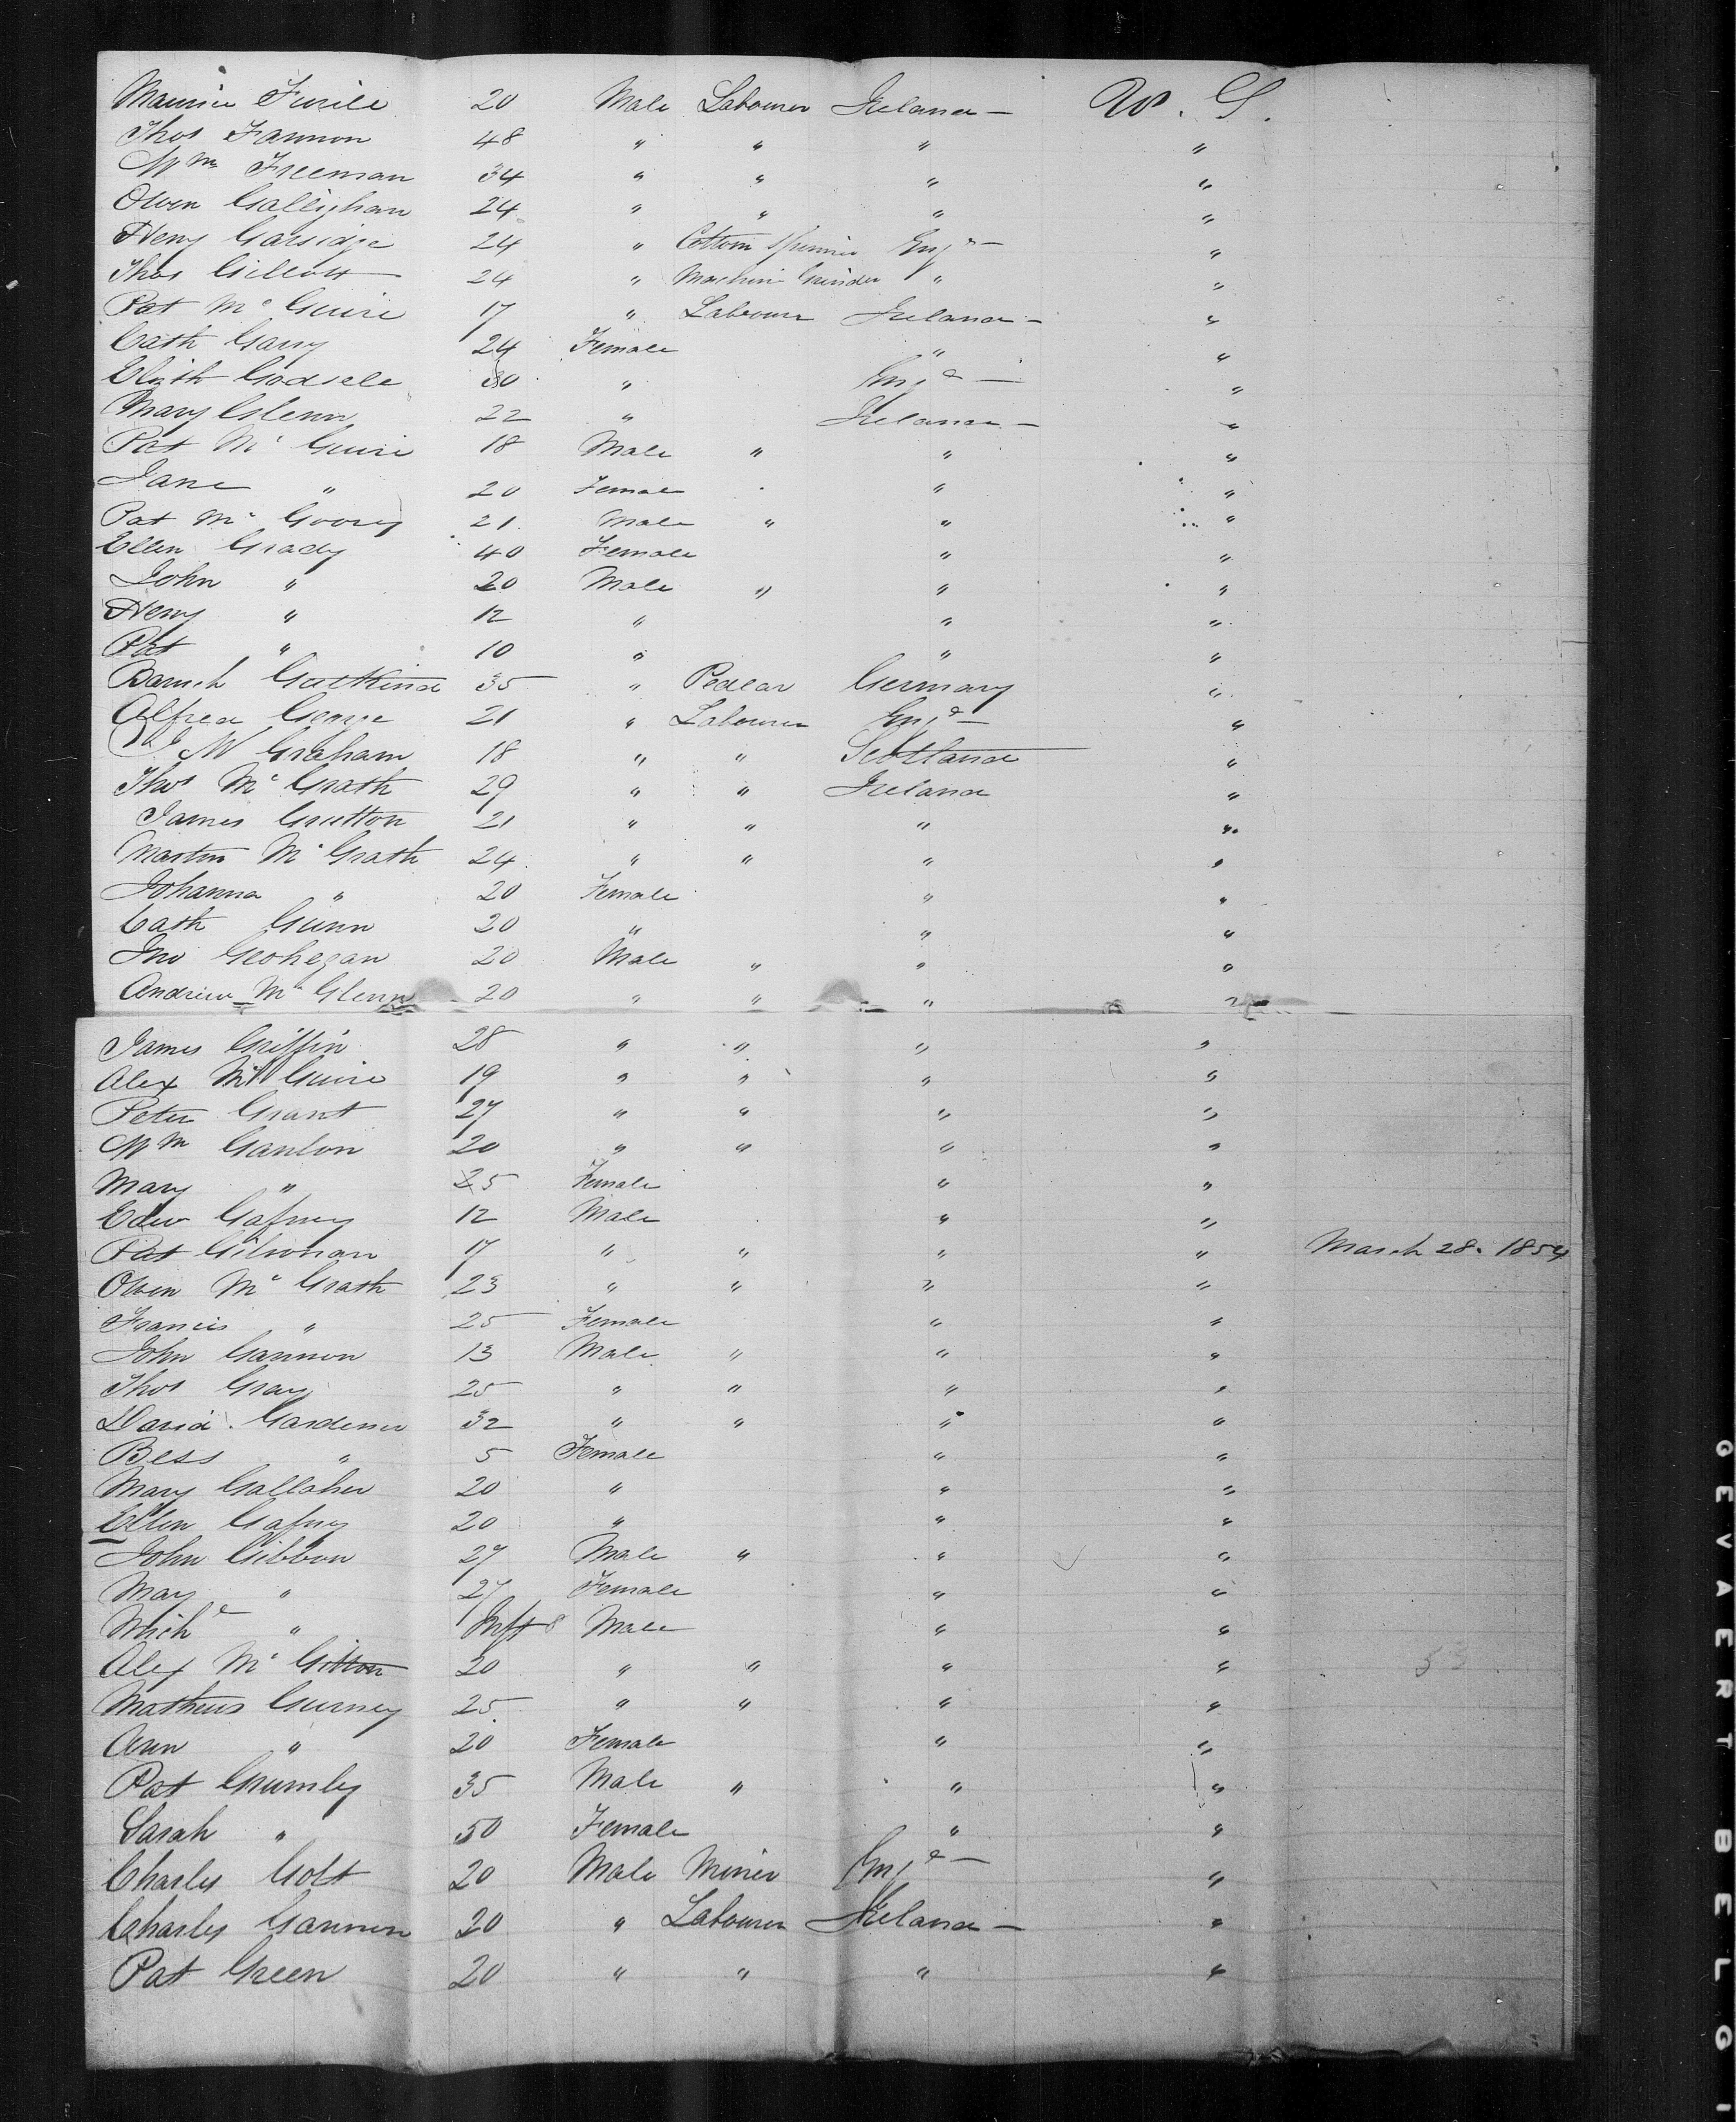 Maurice 20 Male Labourer Ireland — U. S.
Thos Fannon 48 " " " "
Wm Freeman 34 " " " "
Owen Gallighan 24 " " " "
Henry Garsidge 24 " Cotton Spinner Engd — "
Thos Gillott 24 " Machine Grinder " "
Pat Mc Guire 17 " Labourer Ireland — "
Cath Garry 24 Female " "
Elizth Godsell 30 " Engd — "
Mary Glenn 22 " Ireland — "
Pat Mc Guire 18 Male " " "
Jane " 20 Female " "
Pat Mc 21 Male " " "
Ellen Grady 40 Female " "
John " 20 Male " " "
Henry " 12 " " "
Pat " 10 " " "
Baruch Gutkind 35 " Pedlar Germany "
Alfred George 21 " Labourer Engd — "
J W Graham 18 " " Scotland "
Thos Mc Grath 29 " " Ireland "
James Grutton 21 " " " "
Martin Mc Grath 24 " " " "
Johanna " 20 Female " "
Cath Gunn 20 " " "
Jno Geohegan 20 Male " " "
Andrew Mc Glenn 20 " " " "
James Griffin 28 " " " "
Alex Mc Guire 19 " " " "
Peter Grant 27 " " " "
Wm Ganlon 20 " " " "
Mary " 25 Female " "
Edw Gafney 12 Male " "
Pat Gilronan 17 " " " " March 28. 1854
Owen Mc Grath 23 " " " "
Francis " 25 Female " "
John Gannon 13 Male " " "
Thos Gray 25 " " " "
David Gardener 32 " " " "
Bess " 5 Female " "
Mary Gallaher 20 " " "
Ellen Gafney 20 " " "
John Gibbon 27 Male " " "
Mary " 27 Female " "
Michl " Inft 8 Male " "
Alex Mc Gitton 20 " " " " 53
Mathew Gurney 25 " " " "
Ann " 20 Female " "
Pat Grumley 35 Male " " "
Sarah " 50 Female " "
Charles Golt 20 Male Miner Engd — "
Charles Gannon 20 " Labourer Ireland — "
Pat Green 20 " " " "
GEVAERT BELGI